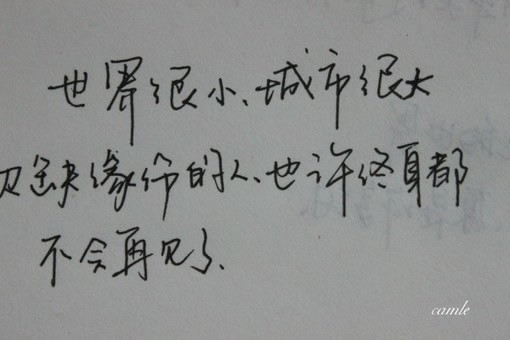 世界很小、城市很大
及缺缘份的人、也许终身都
不会再见了、
camle